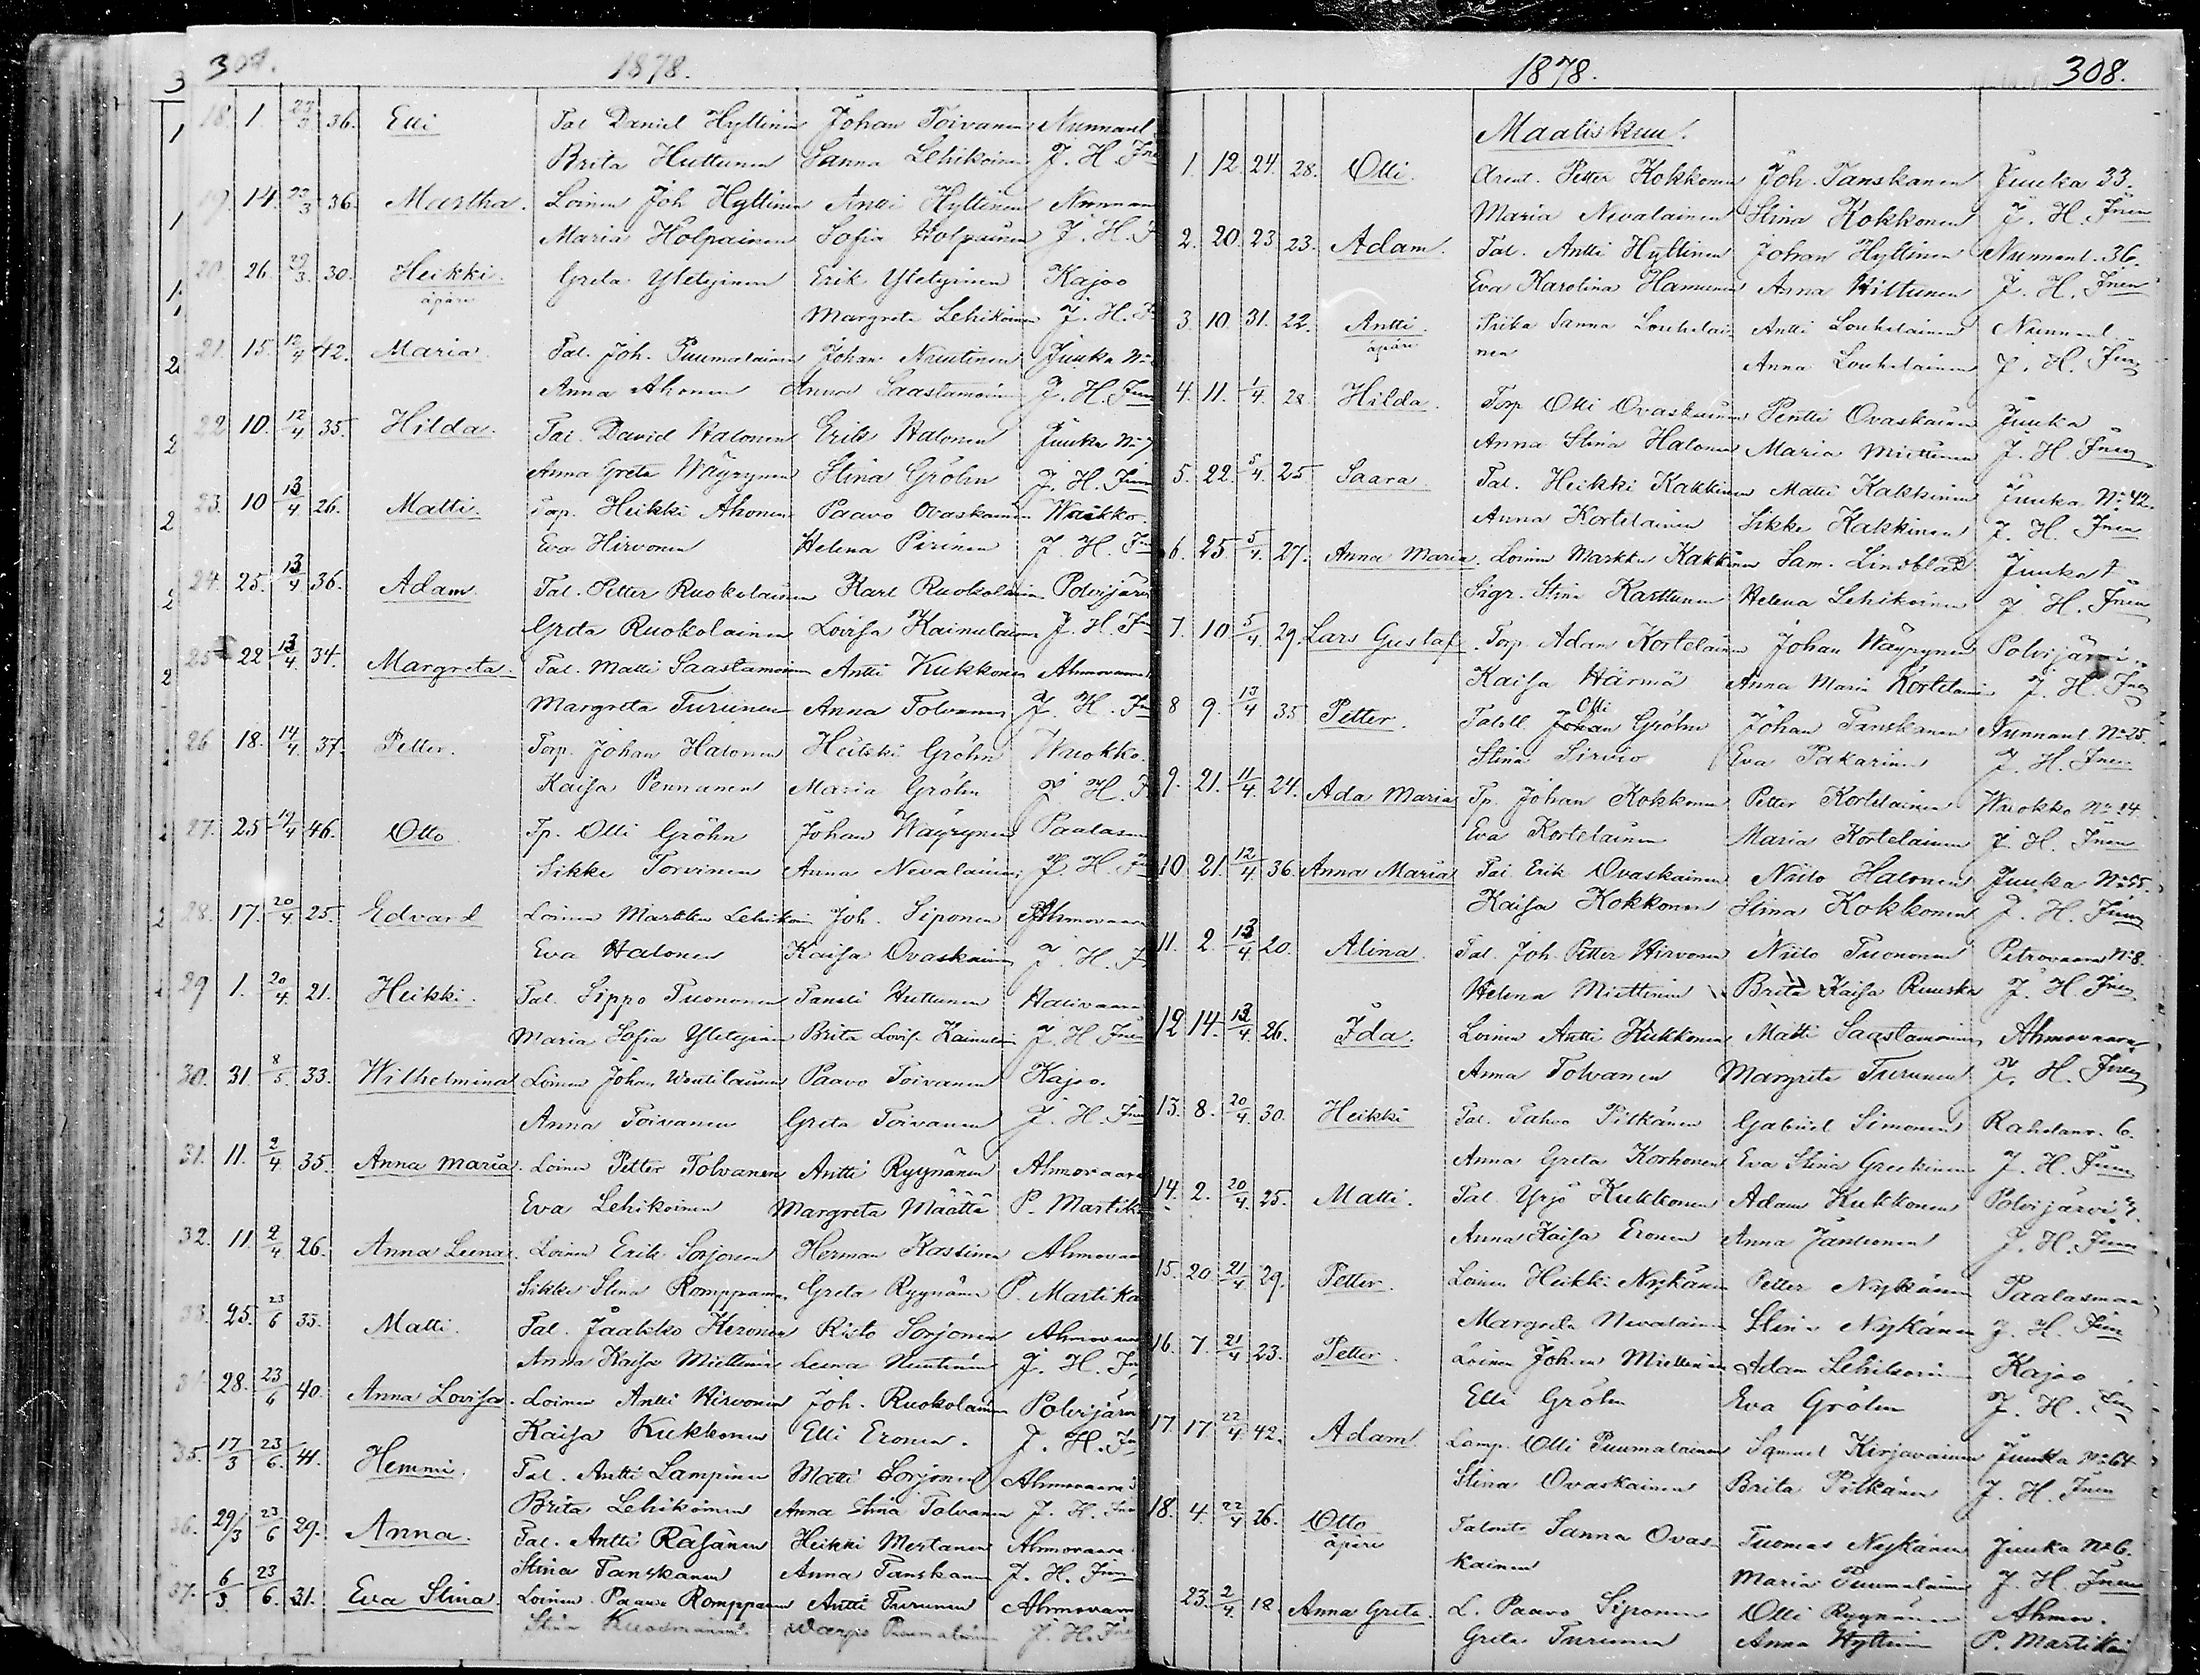 307.
1878.
18. 1. 23/3 36. Elli Tal Daniel Hyttinen Johan Toivanen Nunnanl
Brita Huttunen Sanna Lehikoinen J. H.
19. 14. 23/3 36. Martha. Loinen Joh Hyttinen Antti Hyttinen Nunnan
Maria Holpainen Sofia Holpainen J. H.
20. 26. 29/3. 30. Heikki. Greta Yletyinen Erik Yletyinen Kajoo
äpäre Margreta Lehikoinen J. H.
21. 15. 12/4 42. Maria. Tal. Joh. Puumalainen Johan Nuutinen Juuka No
Anna Ahonen Anna Saastamoinen J. H.
22 10. 12/4 35. Hilda. Tal. David Halonen Erik Halonen Juuka No 7
Anna Greta Wäyrynen Stina Gröhn J. H.
23. 10 13/4 26. Matti. Torp. Heikki Ahonen Paavo Ovaskainen
Eva Hirvonen Helena Pirinen J. H.
24. 25. 13/4 36. Adam. Tal. Petter Ruokolainen Karl Ruokolainen Polvijärv
Greta Ruokolainen Lovisa Kainulainen J. H.
25 22 13/4. 34. Margreta. Tal. Matti Saastamoinen Antti Kukkonen Ahmovaara
Margreta Turunen Anna Tolvanen J. H.
26 18. 14/4. 37. Petter. Torp. Johan Halonen Heikki Gröhn Wuokko.
Kaisa Pennanen Maria Gröhn J. H.
27. 25 19/4 46. Otto Tp. Olli Gröhn Johan Wäyrynen Paalasm
Sikke Torvinen Anna Nevalainen J. H.
28. 17. 20/4 25. Edvard Loinen Markku Lehikoinen Joh. Siponen Ahmovaara
Eva Halonen Kaisa Ovaskainen J. H.
29 1. 20/4. 21. Heikki. Tal. Sippo Tuononen Taneli Huttunen Halivaara
Maria Sofia Yletyinen Brita Lovis. Kainulain J. H.
30. 31. 8/5. 33. Wilhelmina Loinen Johan Wentilainen Paavo Toivanen Kajoo.
Anna Toivanen Greta Toivanen J. H.
31. 11. 2/4 35. Anna Maria. Loinen Petter Tolvanen Antti Ryynänen Ahmovaara
Eva Lehikoinen Margreta Määttä P. Martik
32. 11. 2/4 26. Anna Leena. Loinen Erik Sorjonen Herman Kossinen Ahmovaa
Sikke Stina Romppanen Greta Ryynänen P. Martika
33. 25. 23/6 33. Matti. Tal. Jaakko Keronen Risto Sorjonen Ahmovaar
Anna Kaisa Miettinen Leena Nuutinen J. H.
28. 23/6 40. Anna Lovisa. Loinen Antti Hirvonen Joh. Ruokolainen Polvijärv
Kaisa Kukkonen Elli Eronen. J. H.
35. 17/3 23/6. 41. Hemmi. Tal. Antti Lampinen Matti Sorjonen Ahmovaara
Brita Lehikoinen Anna Stina Tolvanen J. H.
36. 29/3 23/6 29. Anna. Tal. Antti Räsänen Heikki Mertanen Ahmovaara
Stina Tanskanen Anna Tanskanen J. H.
37. 6/3 23/6. 31. Eva Stina Loinen. Paavo Romppanen Antti Turunen Ahmovaara
Stina Puumalainen J. H.
1878. 308.
Maaliskuu.
1. 12 24. 28. Olli. Arent. Petter Kokkonen Joh. Tanskanen Juuka 33.
Maria Nevalainen Stina Kokkonen J. H.
2. 20. 23 23. Adam. Tal. Antti Hyttinen Johan Hyttinen Nunnanl. 36.
Eva Karolina Hamunen Anna Hiltunen J. H.
3. 10. 31. 22. Antti. Piika Sanna Louhelai- Antti Louhelainen Nunnanl
äpäre nen Anna Louhelainen J. H.
4. 11. 1/4. 28 Hilda. Torp Olli Ovaskainen Pentti Ovaskainen Juuka
Anna Stina Halonen Maria Miettinen J. H.
5. 22. 5/4. 25 Saara Tal. Heikki Kakkinen Matti Kakkinen Juuka No 42.
Anna Kortelainen Sikke Kakkinen J. H.
6. 25. 5/4. 27. Anna Maria. Loinen Markku Kakkinen Sam. Lindblad Juuka
Sigr. Stina Karttunen Helena Lehikoinen J. H.
7. 10 5/4 29. Lars Gustaf. Torp. Adam Kortelainen Johan Wäyrynen Polvijärvi
Kaisa Härmä Anna Maria Kortelainen J. H.
8 9. 13/4 35 Petter. Taloll. Johan Olli Gröhn Johan Tanskanen Nunnanl. No 25.
Stina Sirviö Eva Pakarinen J. H.
9. 21. 11/4. 24. Ada Maria Tp. Johan Kokkonen Petter Kortelainen Wuokko No 14.
Eva Kortelainen Maria Kortelainen J. H.
10. 21. 12/4. 36. Anna Maria Tal Erik Ovaskainen Niilo Halonen Juuka No 55.
Kaisa Kokkonen Stina Kokkonen J. H.
11. 2. 13/4 20. Alina. Tal. Joh. Petter Hirvonen Niilo Tuononen Petrovaara No 8.
Helena Miettinen Brita Kaisa Ruuska J. H.
12 14. 13/4. 26. Ida. Loinen Antti Kukkonen Matti Saastamoinen Ahmovaara
Anna Tolvanen Margreta Turunen J. H.
13. 8. 20/4. 30. Heikki Tal. Tahvo Pitkänen Gabriel Simonen Rahelanv. 6.
Anna Greta Korhonen Eva Stina Greekinen J. H.
14. 2. 20/4. 25. Matti. Tal. Yrjö Kukkonen Adam Kukkonen Polvijärvi
Anna Kaisa Eronen Anna Jantunen J. H.
15. 20. 21/4 29. Petter. Loinen Heikki Nykänen Petter Nykänen Paalasmaa
Margreta Nevalainen Stina Nykänen J. H.
16. 7. 21/4 23. Petter. Loinen Johan Miettinen Adam Lehikoinen Kajoo
Elli Gröhn Eva Gröhn J. H.
17. 17 22/4 42. Adam. Lamp. Olli Puumalainen Samuel Kirjavainen Juuka No 64
Stina Ovaskainen Brita Pitkänen J. H.
18. 4. 22/4 26. Otto Talont. Sanna Ovas- Tuomas Nykänen Juuka No 6.
äpäre kainen Maria Puumalainen J. H.
23. 2/4. 18 Anna Greta. L. Paavo Siponen Olli Ryynänen Ahmov.
Greta Turunen Anna Hyttinen P. Martikai